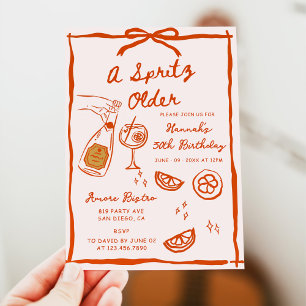 A Spritz
Older
PLEASE JOIN US FOR
Hannah's
30th Birthday
JUNE - 09 - 20XX AT 12PM
Amore Bistro
819 PARTY AVE
SAN DIEGO, CA
RSVP
TO DAVID BY JUNE 02
AT 123.456.7890